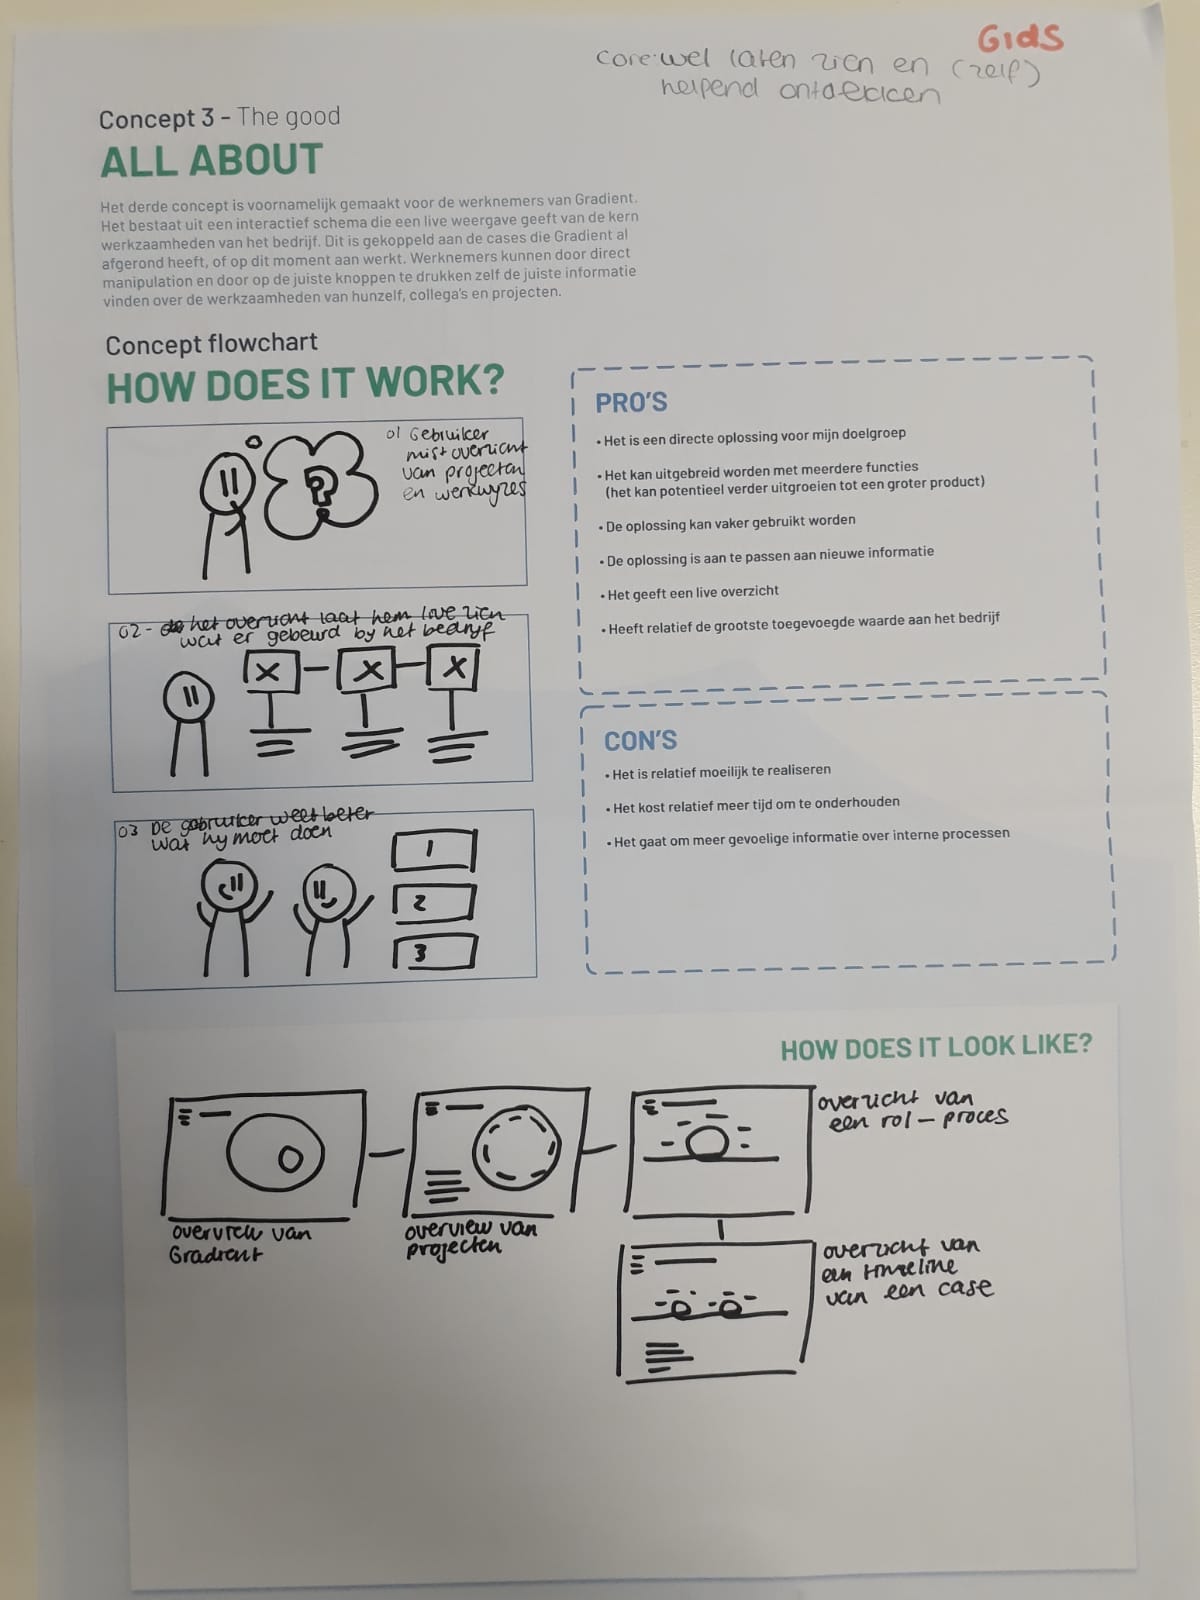 GIDS
core: wel laten zien en (zelf)
helpend ontdekken
Concept 3 - The good
ALL ABOUT
Het derde concept is voornamelijk gemaakt voor de werknemers van Gradient.
Het bestaat uit een interactief schema die een live weergave geeft van de kern
werkzaamheden van het bedrijf. Dit is gekoppeld aan de cases die Gradient al
afgerond heeft, of op dit moment aan werkt. Werknemers kunnen door direct
manipulation en door op de juiste knoppen te drukken zelf de juiste informatie
vinden over de werkzaamheden van hunzelf, collega's en projecten.
Concept flowchart
HOW DOES IT WORK?
01 Gebruiker
mist overzicht
van projecten
en werkwyzes
?
02 - het overzicht laat hem live zien
wat er gebeurd by het bedryf
X X X
03 De gebruiker weet beter
wat hy moet doen
1
2
3
PRO'S
• Het is een directe oplossing voor mijn doelgroep
• Het kan uitgebreid worden met meerdere functies
(het kan potentieel verder uitgroeien tot een groter product)
• De oplossing kan vaker gebruikt worden
• De oplossing is aan te passen aan nieuwe informatie
• Het geeft een live overzicht
• Heeft relatief de grootste toegevoegde waarde aan het bedrijf
CON'S
• Het is relatief moeilijk te realiseren
• Het kost relatief meer tijd om te onderhouden
• Het gaat om meer gevoelige informatie over interne processen
HOW DOES IT LOOK LIKE?
overview van
Gradient
overview van
projecten
overzicht van
een rol - proces
overzicht van
een timeline
van een case